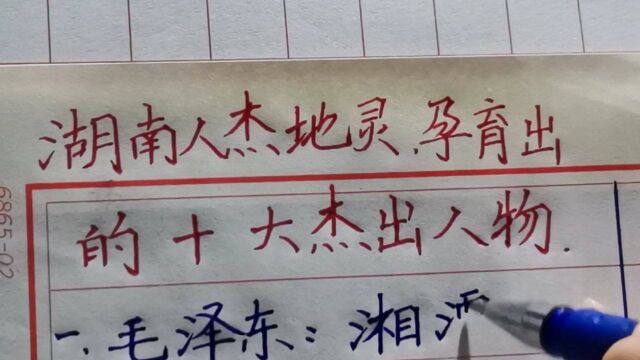 湖南人杰地灵.孕育出
的十大杰出人物.
一.毛泽东：湘
6865-02